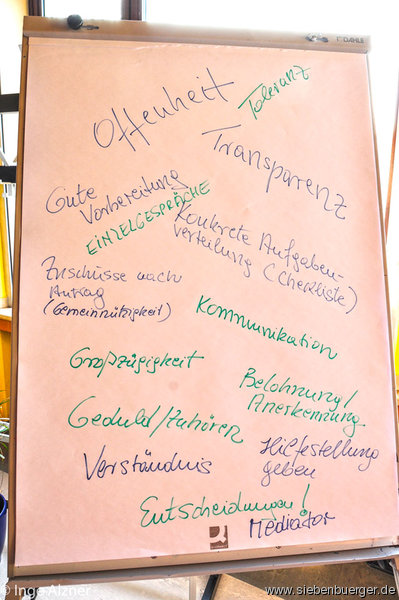 DAHLE
Offenheit
Toleranz
Transparenz
Gute
Vorbereitung
EINZELGESPRÄCHE
Konkrete Aufgaben-
verteilung (Checkliste)
Zuschüsse nach
Antrag
(Gemeinnützigkeit)
Kommunikation
Großzügigkeit
Belohnung/
Anerkennung
Geduld/zuhören
Hilfestellung
geben
Verständnis
Entscheidungen!
Mediator
© Ingo Alzner
www.siebenbuerger.de